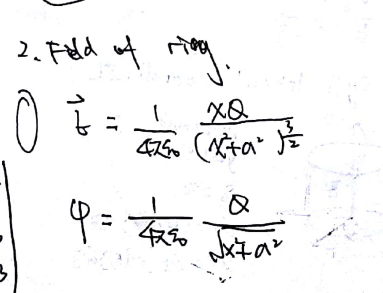 2. Field of ring.
① E⃗ = 1/(4πε₀) xQ/(x²+a²)^(3/2)
φ = 1/(4πε₀) Q/√(x²+a²)